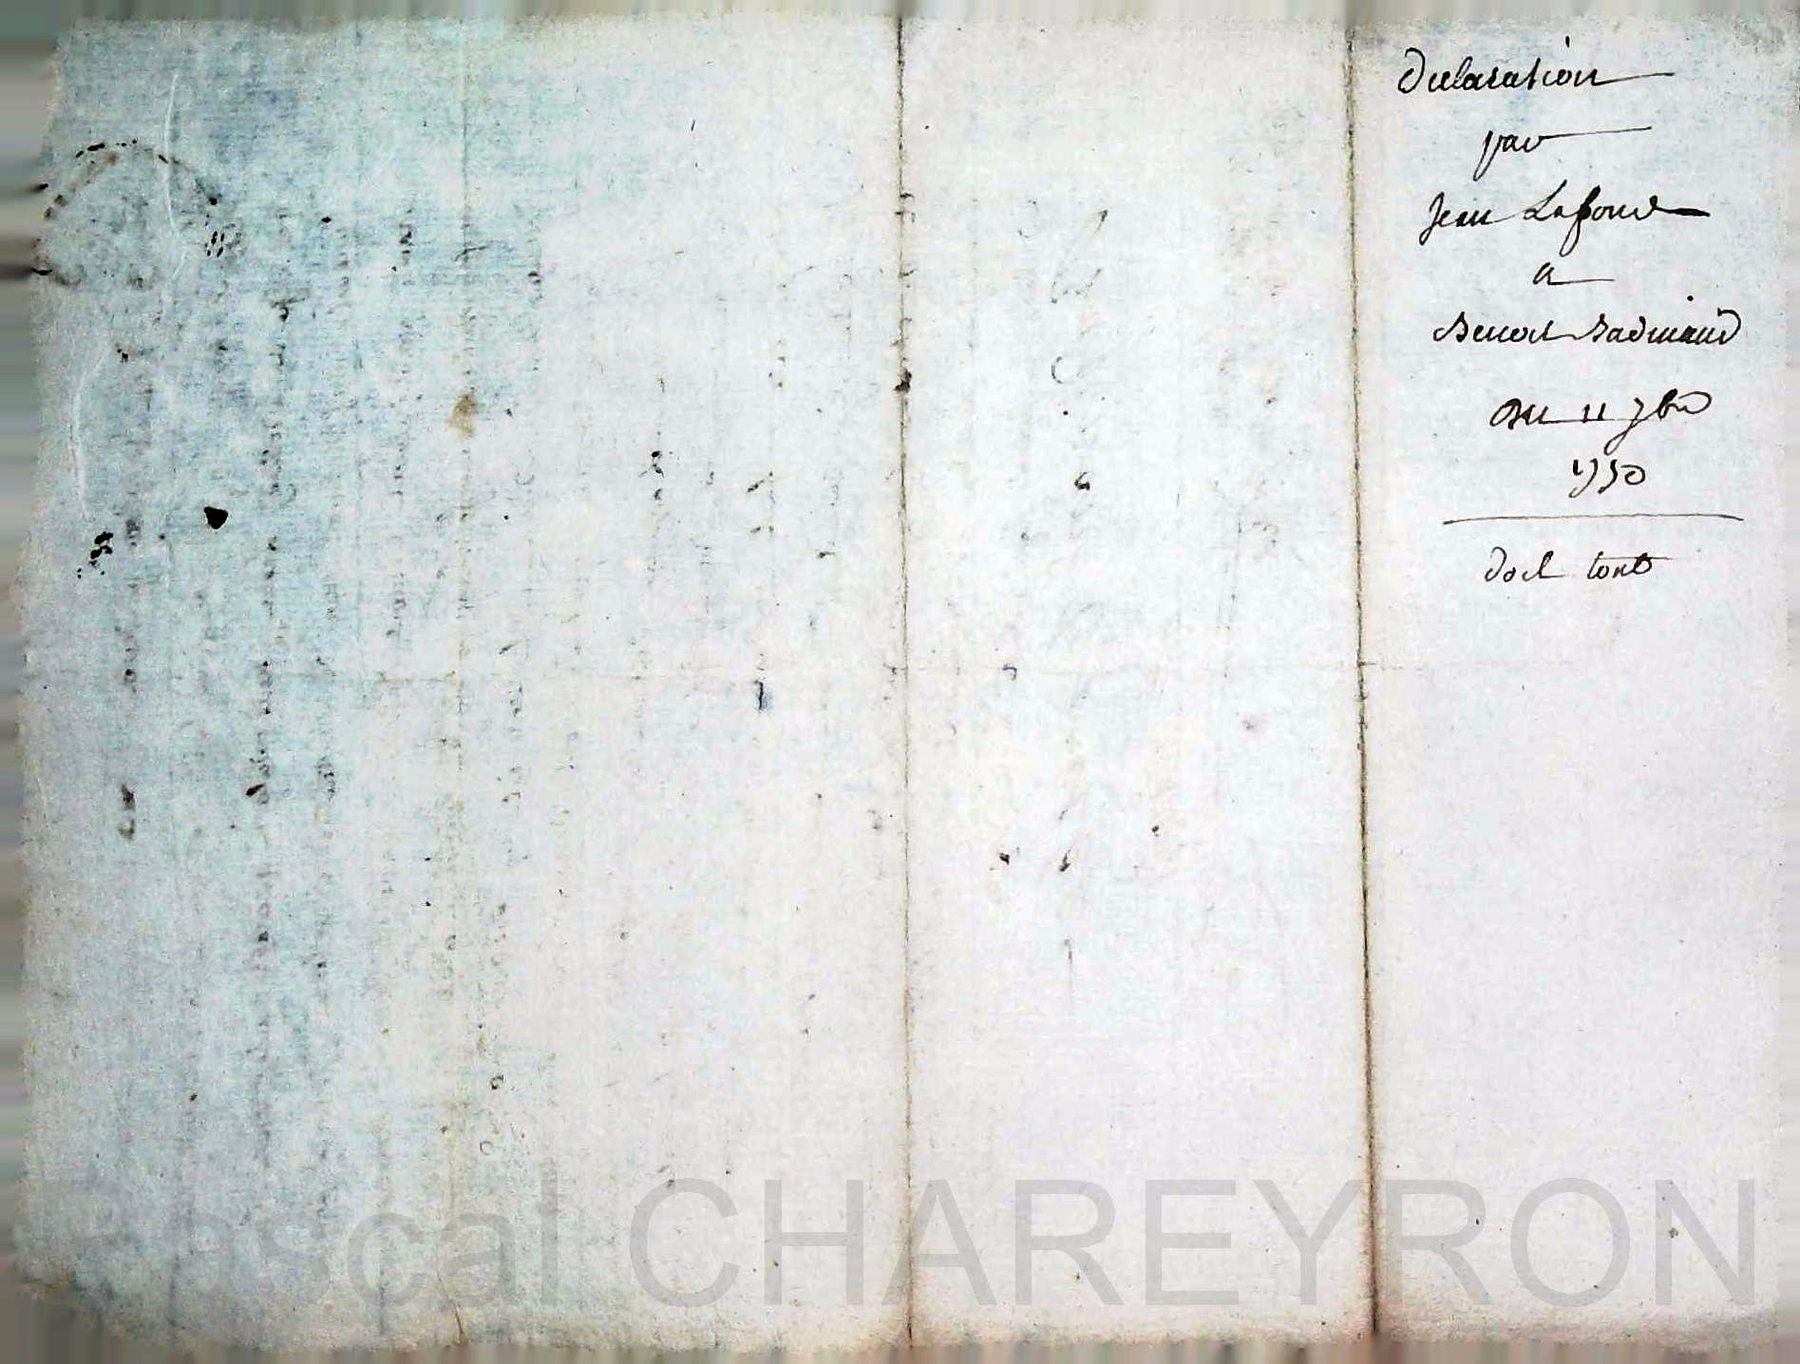 Declaration
par
Jean Lafond
a
Benoit
Du 11 7bre
1750
doit tout
Pascal CHAREYRON